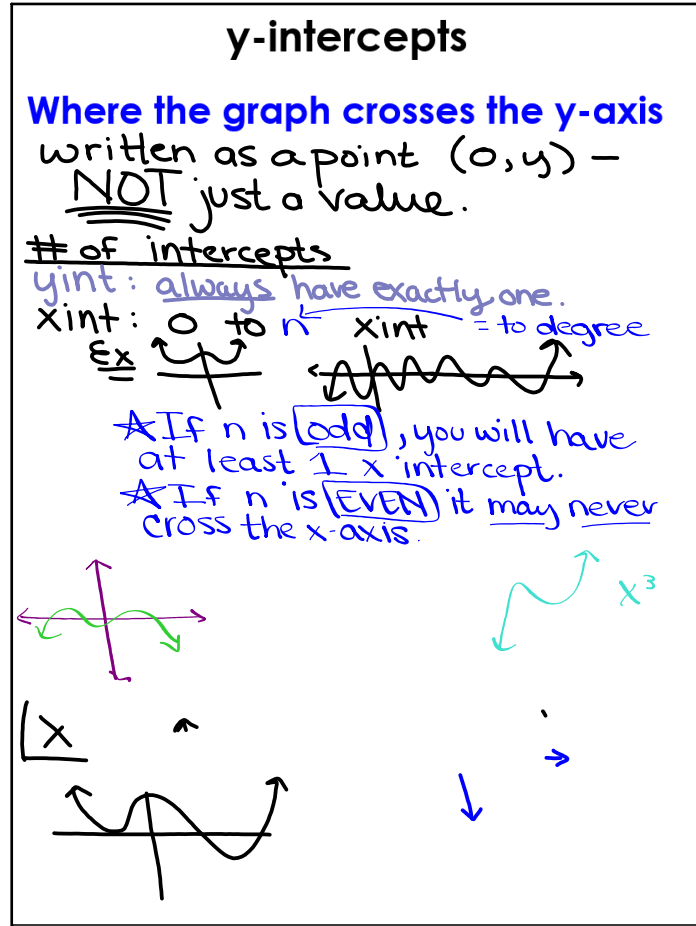 y-intercepts
Where the graph crosses the y-axis
written as a point (0,y) –
NOT just a value.
# of intercepts
yint: always have exactly one.
xint: 0 to n xint = to degree
Ex
☆If n is odd, you will have
at least 1 x intercept.
☆If n is EVEN it may never
cross the x-axis.
x³
X